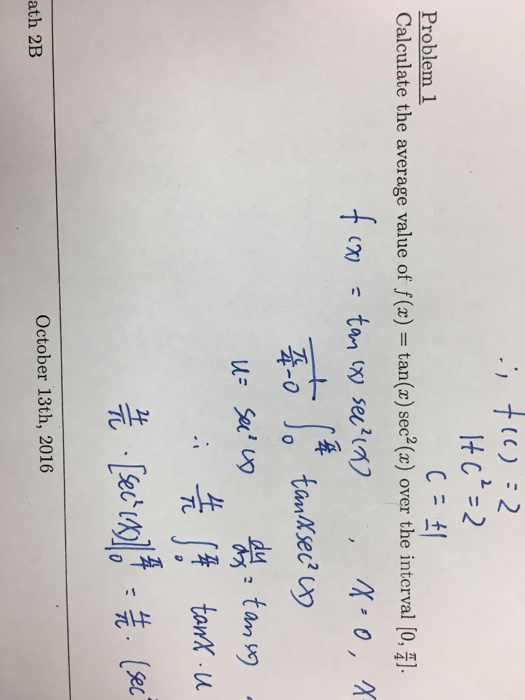 ∴ f(c) = 2
1+c² = 2
c = ±1
Problem 1
Calculate the average value of f(x) = tan(x) sec²(x) over the interval [0, π/4].
f(x) = tan(x) sec²(x) , x=0, x
1/(π/4-0) ∫₀^(π/4) tanx sec²(x)
u = sec²(x) du/dx = tan(x)
∴ 4/π ∫₀^(π/4) tanx · u
4/π · [sec²(x)]|₀^(π/4) = 4/π · (sec
ath 2B October 13th, 2016